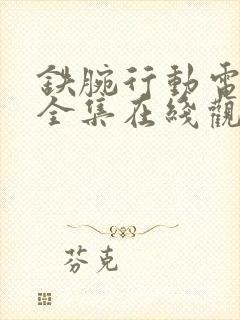 鉄腕行動電
全集在綫觀
芬克